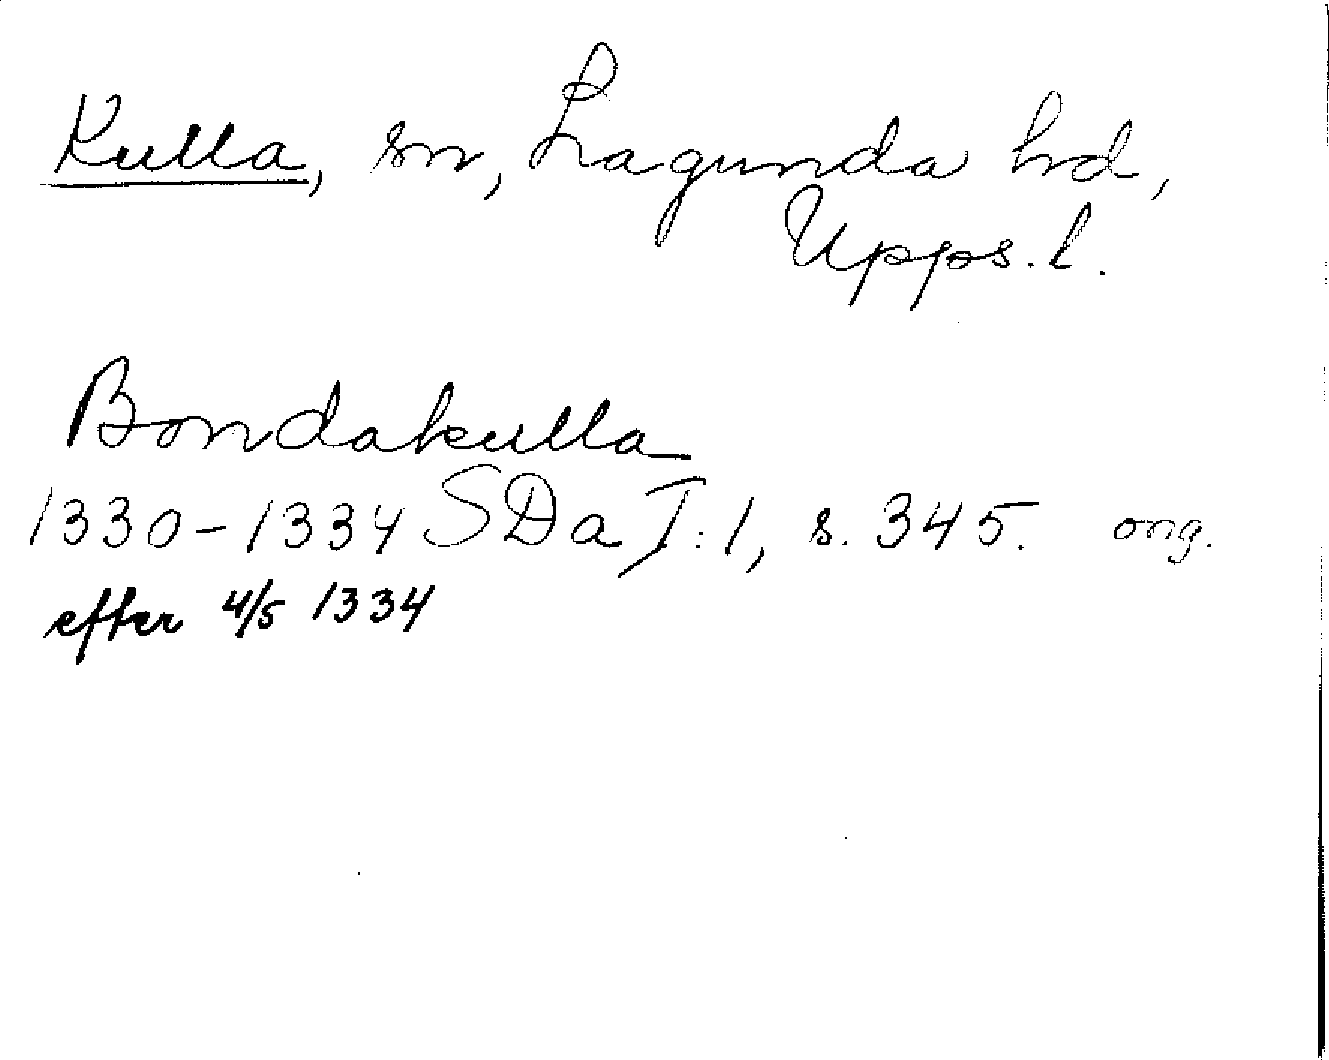 Kulla, sn, Lagunda hd,
Upps. l.
Bondakulla
1330-1334 SDa I:1, s. 345. orig.
efter 4/5 1334